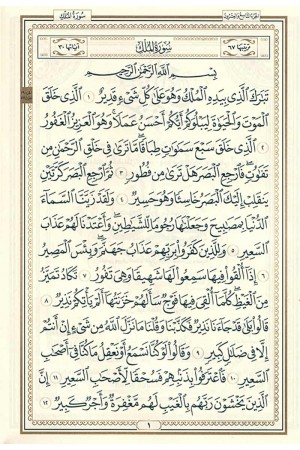 سُورَةُ المُلْكِ
الجزء التاسع والعشرون
ترتيبها ٦٧
سُورَةُ المُلْكِ
آياتها ٣٠
بِسْمِ اللَّهِ الرَّحْمَٰنِ الرَّحِيمِ
تَبَٰرَكَ ٱلَّذِي بِيَدِهِ ٱلْمُلْكُ وَهُوَ عَلَىٰ كُلِّ شَىْءٍ قَدِيرٌ ١ ٱلَّذِي خَلَقَ
ٱلْمَوْتَ وَٱلْحَيَوٰةَ لِيَبْلُوَكُمْ أَيُّكُمْ أَحْسَنُ عَمَلًا وَهُوَ ٱلْعَزِيزُ ٱلْغَفُورُ
٢ ٱلَّذِي خَلَقَ سَبْعَ سَمَٰوَٰتٍ طِبَاقًا مَّا تَرَىٰ فِي خَلْقِ ٱلرَّحْمَٰنِ مِن
تَفَٰوُتٍ فَٱرْجِعِ ٱلْبَصَرَ هَلْ تَرَىٰ مِن فُطُورٍ ٣ ثُمَّ ٱرْجِعِ ٱلْبَصَرَ كَرَّتَيْنِ
يَنقَلِبْ إِلَيْكَ ٱلْبَصَرُ خَاسِئًا وَهُوَ حَسِيرٌ ٤ وَلَقَدْ زَيَّنَّا ٱلسَّمَآءَ
ٱلدُّنْيَا بِمَصَٰبِيحَ وَجَعَلْنَٰهَا رُجُومًا لِّلشَّيَٰطِينِ وَأَعْتَدْنَا لَهُمْ عَذَابَ
ٱلسَّعِيرِ ٥ وَلِلَّذِينَ كَفَرُوا۟ بِرَبِّهِمْ عَذَابُ جَهَنَّمَ وَبِئْسَ ٱلْمَصِيرُ
٦ إِذَآ أُلْقُوا۟ فِيهَا سَمِعُوا۟ لَهَا شَهِيقًا وَهِىَ تَفُورُ ٧ تَكَادُ تَمَيَّزُ
مِنَ ٱلْغَيْظِ كُلَّمَآ أُلْقِىَ فِيهَا فَوْجٌ سَأَلَهُمْ خَزَنَتُهَآ أَلَمْ يَأْتِكُمْ نَذِيرٌ ٨
قَالُوا۟ بَلَىٰ قَدْ جَآءَنَا نَذِيرٌ فَكَذَّبْنَا وَقُلْنَا مَا نَزَّلَ ٱللَّهُ مِن شَىْءٍ إِنْ أَنتُمْ
إِلَّا فِي ضَلَٰلٍ كَبِيرٍ ٩ وَقَالُوا۟ لَوْ كُنَّا نَسْمَعُ أَوْ نَعْقِلُ مَا كُنَّا فِيٓ أَصْحَٰبِ
ٱلسَّعِيرِ ١٠ فَٱعْتَرَفُوا۟ بِذَنۢبِهِمْ فَسُحْقًا لِّأَصْحَٰبِ ٱلسَّعِيرِ ١١ إِنَّ
ٱلَّذِينَ يَخْشَوْنَ رَبَّهُم بِٱلْغَيْبِ لَهُم مَّغْفِرَةٌ وَأَجْرٌ كَبِيرٌ ١٢
١